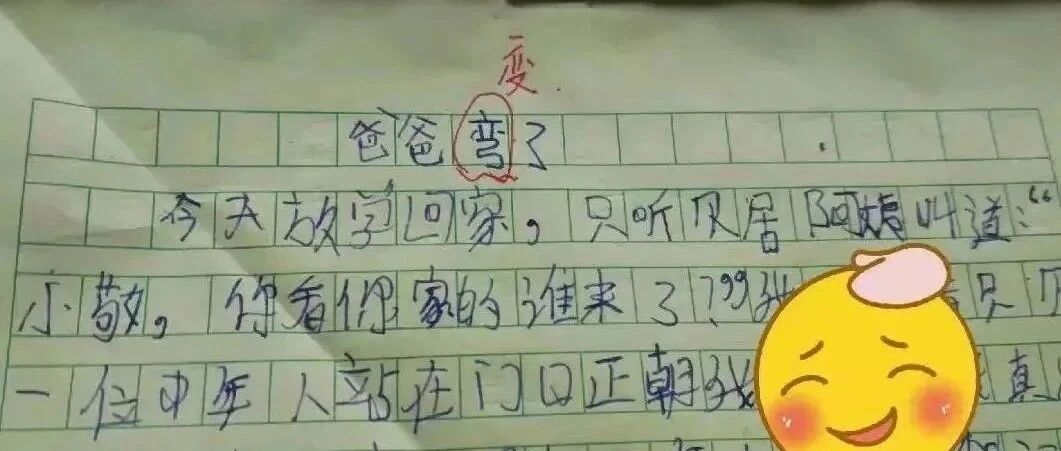 变
爸爸弯了
今天放学回家，只听贝居阿姨叫道：“
小敬，你看你家的谁来了？”我 只
一位中年人站在门口正朝我 真